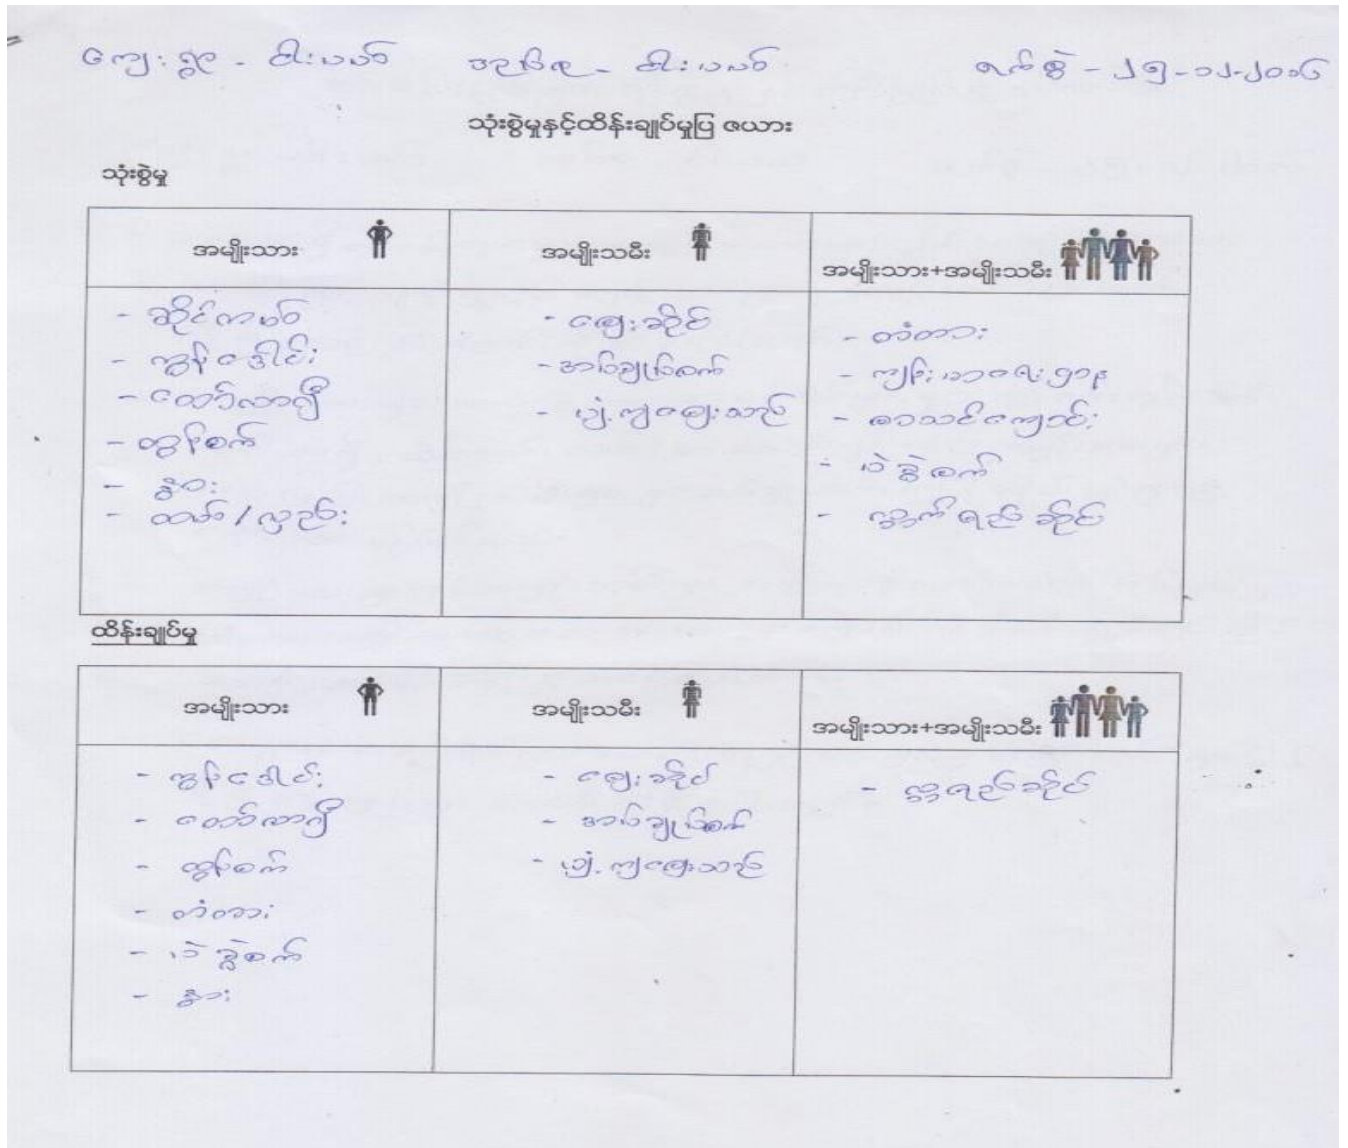 ကျေးရွာ - ငါးပယစ် ဥပစာ - ငါးပယစ် ရက်စွဲ - ၂၅-၁၂-၂၀၁၆
သုံးစွဲမှုနှင့်ထိန်းချုပ်မှုပြ ဇယား
သုံးစွဲမှု
အမျိုးသား အမျိုးသမီး အမျိုးသား+အမျိုးသမီး
- ဆိုင်ကယ်
- ကွန်ဒေါင်း
- တော်လာဂျီ
- ထွန်စက်
- နွား
- ထယ် / လှည်း
- ဈေးဆိုင်
- အပ်ချုပ်စက်
- ပျံကျဈေးသည်
- တံတား
- ကျန်းမာရေးဌာန
- စာသင်ကျောင်း
- ပဲခွဲစက်
- လ္ဘက်ရည်ဆိုင်
ထိန်းချုပ်မှု
အမျိုးသား အမျိုးသမီး အမျိုးသား+အမျိုးသမီး
- ကွန်ဒေါင်း
- တော်လာဂျီ
- ထွန်စက်
- တံတား
- ပဲခွဲစက်
- နွား
- ဈေးဆိုင်
- အပ်ချုပ်စက်
- ပျံကျဈေးသည်
- လ္ဘရည်ဆိုင်